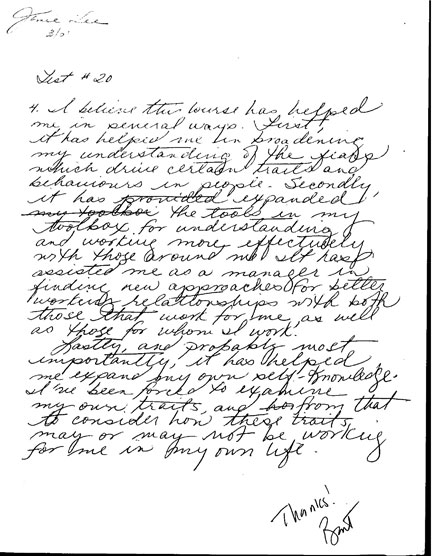 Test #20
4. I believe this course has helped
me in several ways. First,
it has helped me in broadening
my understanding of the fears
which drive certain traits and
behaviours in people. Secondly,
it has provided expanded
my toolbox the tools in my
toolbox for understanding
and working more effectively
with those around me. It has
assisted me as a manager in
finding new approaches for better
working relationships with both
those that work for me as well
as those for whom I work.
Lastly, and probably most
importantly, it has helped
me expand my own self-knowledge.
I've been forced to examine
my own traits, and from that
to consider how these traits
may or may not be working
for me in my own life.
Thanks!